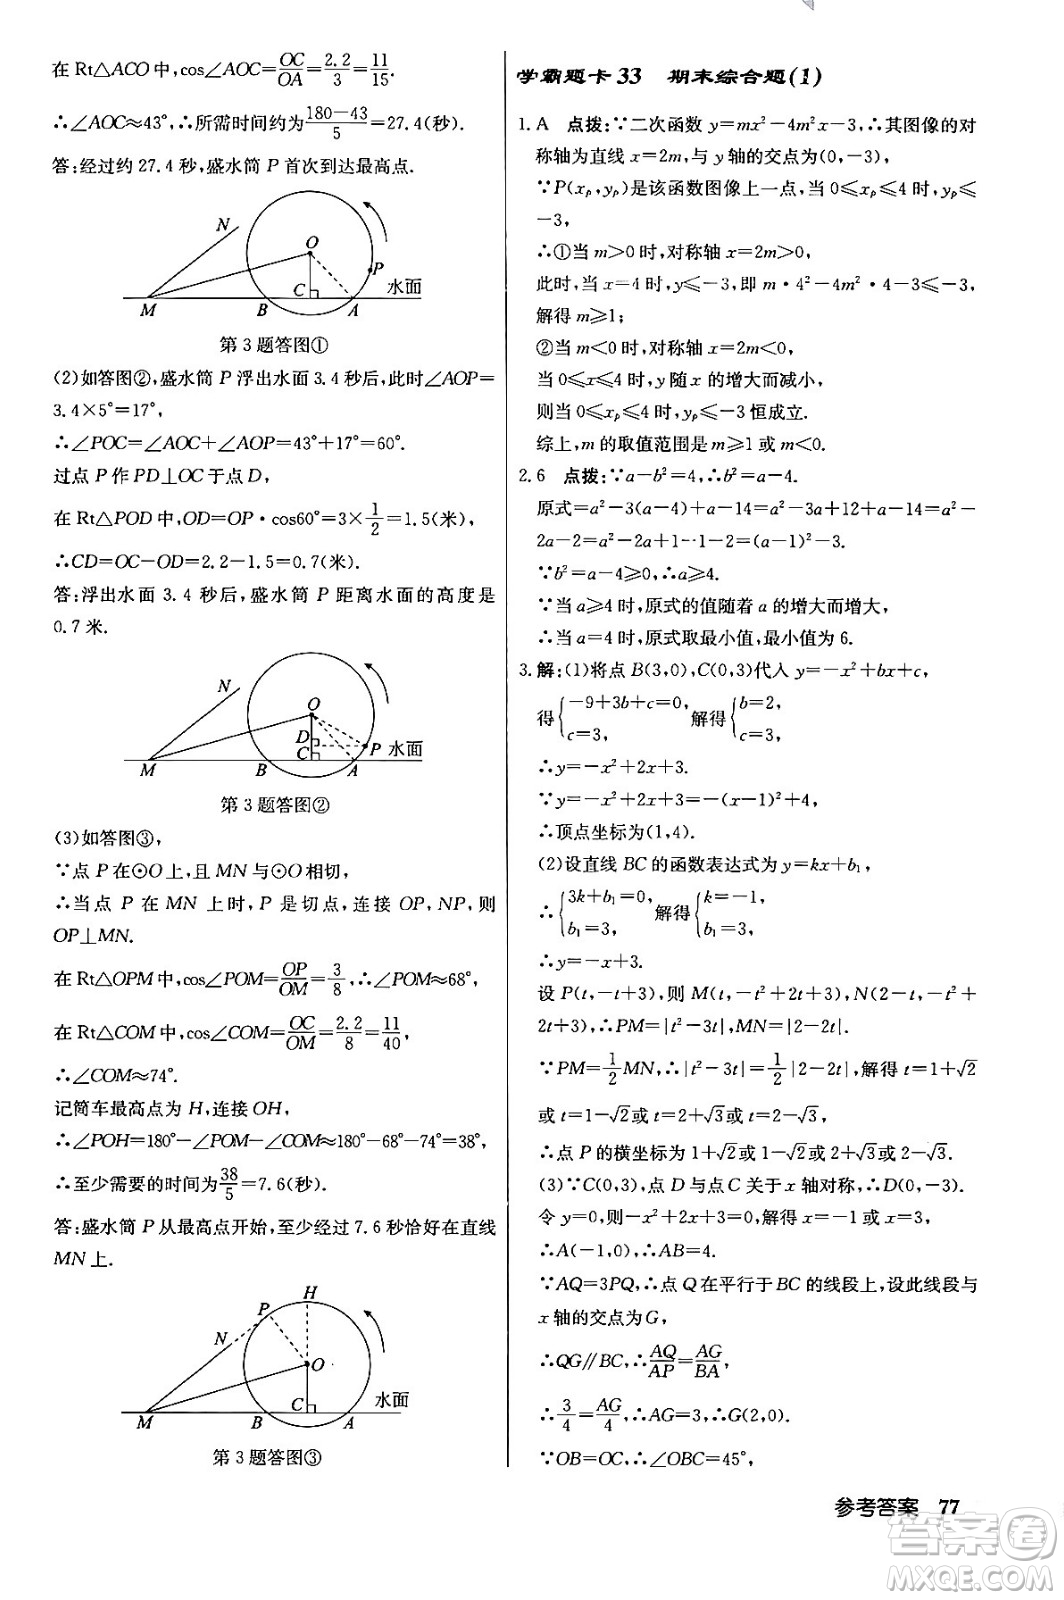 在 Rt△ACO 中,cos∠AOC=OC/OA=2.2/3=11/15.
∴∠AOC≈43°,∴所需时间约为(180-43)/5=27.4(秒).
答:经过约 27.4 秒,盛水筒 P 首次到达最高点.
N
O
P
C
水面
M
B
A
第 3 题答图①
(2)如答图②,盛水筒 P 浮出水面 3.4 秒后,此时∠AOP=
3.4×5°=17°,
∴∠POC=∠AOC+∠AOP=43°+17°=60°.
过点 P 作 PD⊥OC 于点 D,
在 Rt△POD 中,OD=OP·cos60°=3×1/2=1.5(米),
∴CD=OC-OD=2.2-1.5=0.7(米).
答:浮出水面 3.4 秒后,盛水筒 P 距离水面的高度是
0.7 米.
N
O
D
C
P
水面
M
B
A
第 3 题答图②
(3)如答图③,
∵点 P 在⊙O 上,且 MN 与⊙O 相切,
∴当点 P 在 MN 上时,P 是切点,连接 OP,NP,则
OP⊥MN.
在 Rt△OPM 中,cos∠POM=OP/OM=3/8,∴∠POM≈68°,
在 Rt△COM 中,cos∠COM=OC/OM=2.2/8=11/40,
∴∠COM≈74°.
记筒车最高点为 H,连接 OH,
∴∠POH=180°-∠POM-∠COM≈180°-68°-74°=38°,
∴至少需要的时间为38/5=7.6(秒).
答:盛水筒 P 从最高点开始,至少经过 7.6 秒恰好在直线
MN 上.
H
P
N
O
C
水面
M
B
A
第 3 题答图③
学霸题卡 33 期末综合题(1)
1. A 点拨:∵二次函数 y=mx²-4m²x-3,∴其图像的对
称轴为直线 x=2m,与 y 轴的交点为(0,-3),
∵P(xₚ,yₚ)是该函数图像上一点,当 0≤xₚ≤4 时,yₚ≤
-3,
∴①当 m>0 时,对称轴 x=2m>0,
此时,当 x=4 时,y≤-3,即 m·4²-4m²·4-3≤-3,
解得 m≥1;
②当 m<0 时,对称轴 x=2m<0,
当 0≤x≤4 时,y 随 x 的增大而减小,
则当 0≤xₚ≤4 时,yₚ≤-3 恒成立.
综上,m 的取值范围是 m≥1 或 m<0.
2. 6 点拨:∵a-b²=4,∴b²=a-4.
原式=a²-3(a-4)+a-14=a²-3a+12+a-14=a²-
2a-2=a²-2a+1-1-2=(a-1)²-3.
∵b²=a-4≥0,∴a≥4.
∵当 a≥4 时,原式的值随着 a 的增大而增大,
∴当 a=4 时,原式取最小值,最小值为 6.
3. 解:(1)将点 B(3,0),C(0,3)代入 y=-x²+bx+c,
得{-9+3b+c=0, c=3, 解得{b=2, c=3,
∴y=-x²+2x+3.
∵y=-x²+2x+3=-(x-1)²+4,
∴顶点坐标为(1,4).
(2)设直线 BC 的函数表达式为 y=kx+b₁,
∴{3k+b₁=0, b₁=3, 解得{k=-1, b₁=3,
∴y=-x+3.
设 P(t,-t+3),则 M(t,-t²+2t+3),N(2-t,-t²+
2t+3),∴PM=|t²-3t|,MN=|2-2t|.
∵PM=1/2MN,∴|t²-3t|=1/2|2-2t|,解得 t=1+√2
或 t=1-√2或 t=2+√3或 t=2-√3.
∴点 P 的横坐标为 1+√2或 1-√2或 2+√3或 2-√3.
(3)∵C(0,3),点 D 与点 C 关于 x 轴对称,∴D(0,-3).
令 y=0,则-x²+2x+3=0,解得 x=-1 或 x=3,
∴A(-1,0),∴AB=4.
∵AQ=3PQ,∴点 Q 在平行于 BC 的线段上,设此线段与
x 轴的交点为 G,
∴QG∥BC,∴AQ/AP=AG/BA,
∴3/4=AG/4,∴AG=3,∴G(2,0).
∵OB=OC,∴∠OBC=45°,
参考答案 77
答案卷